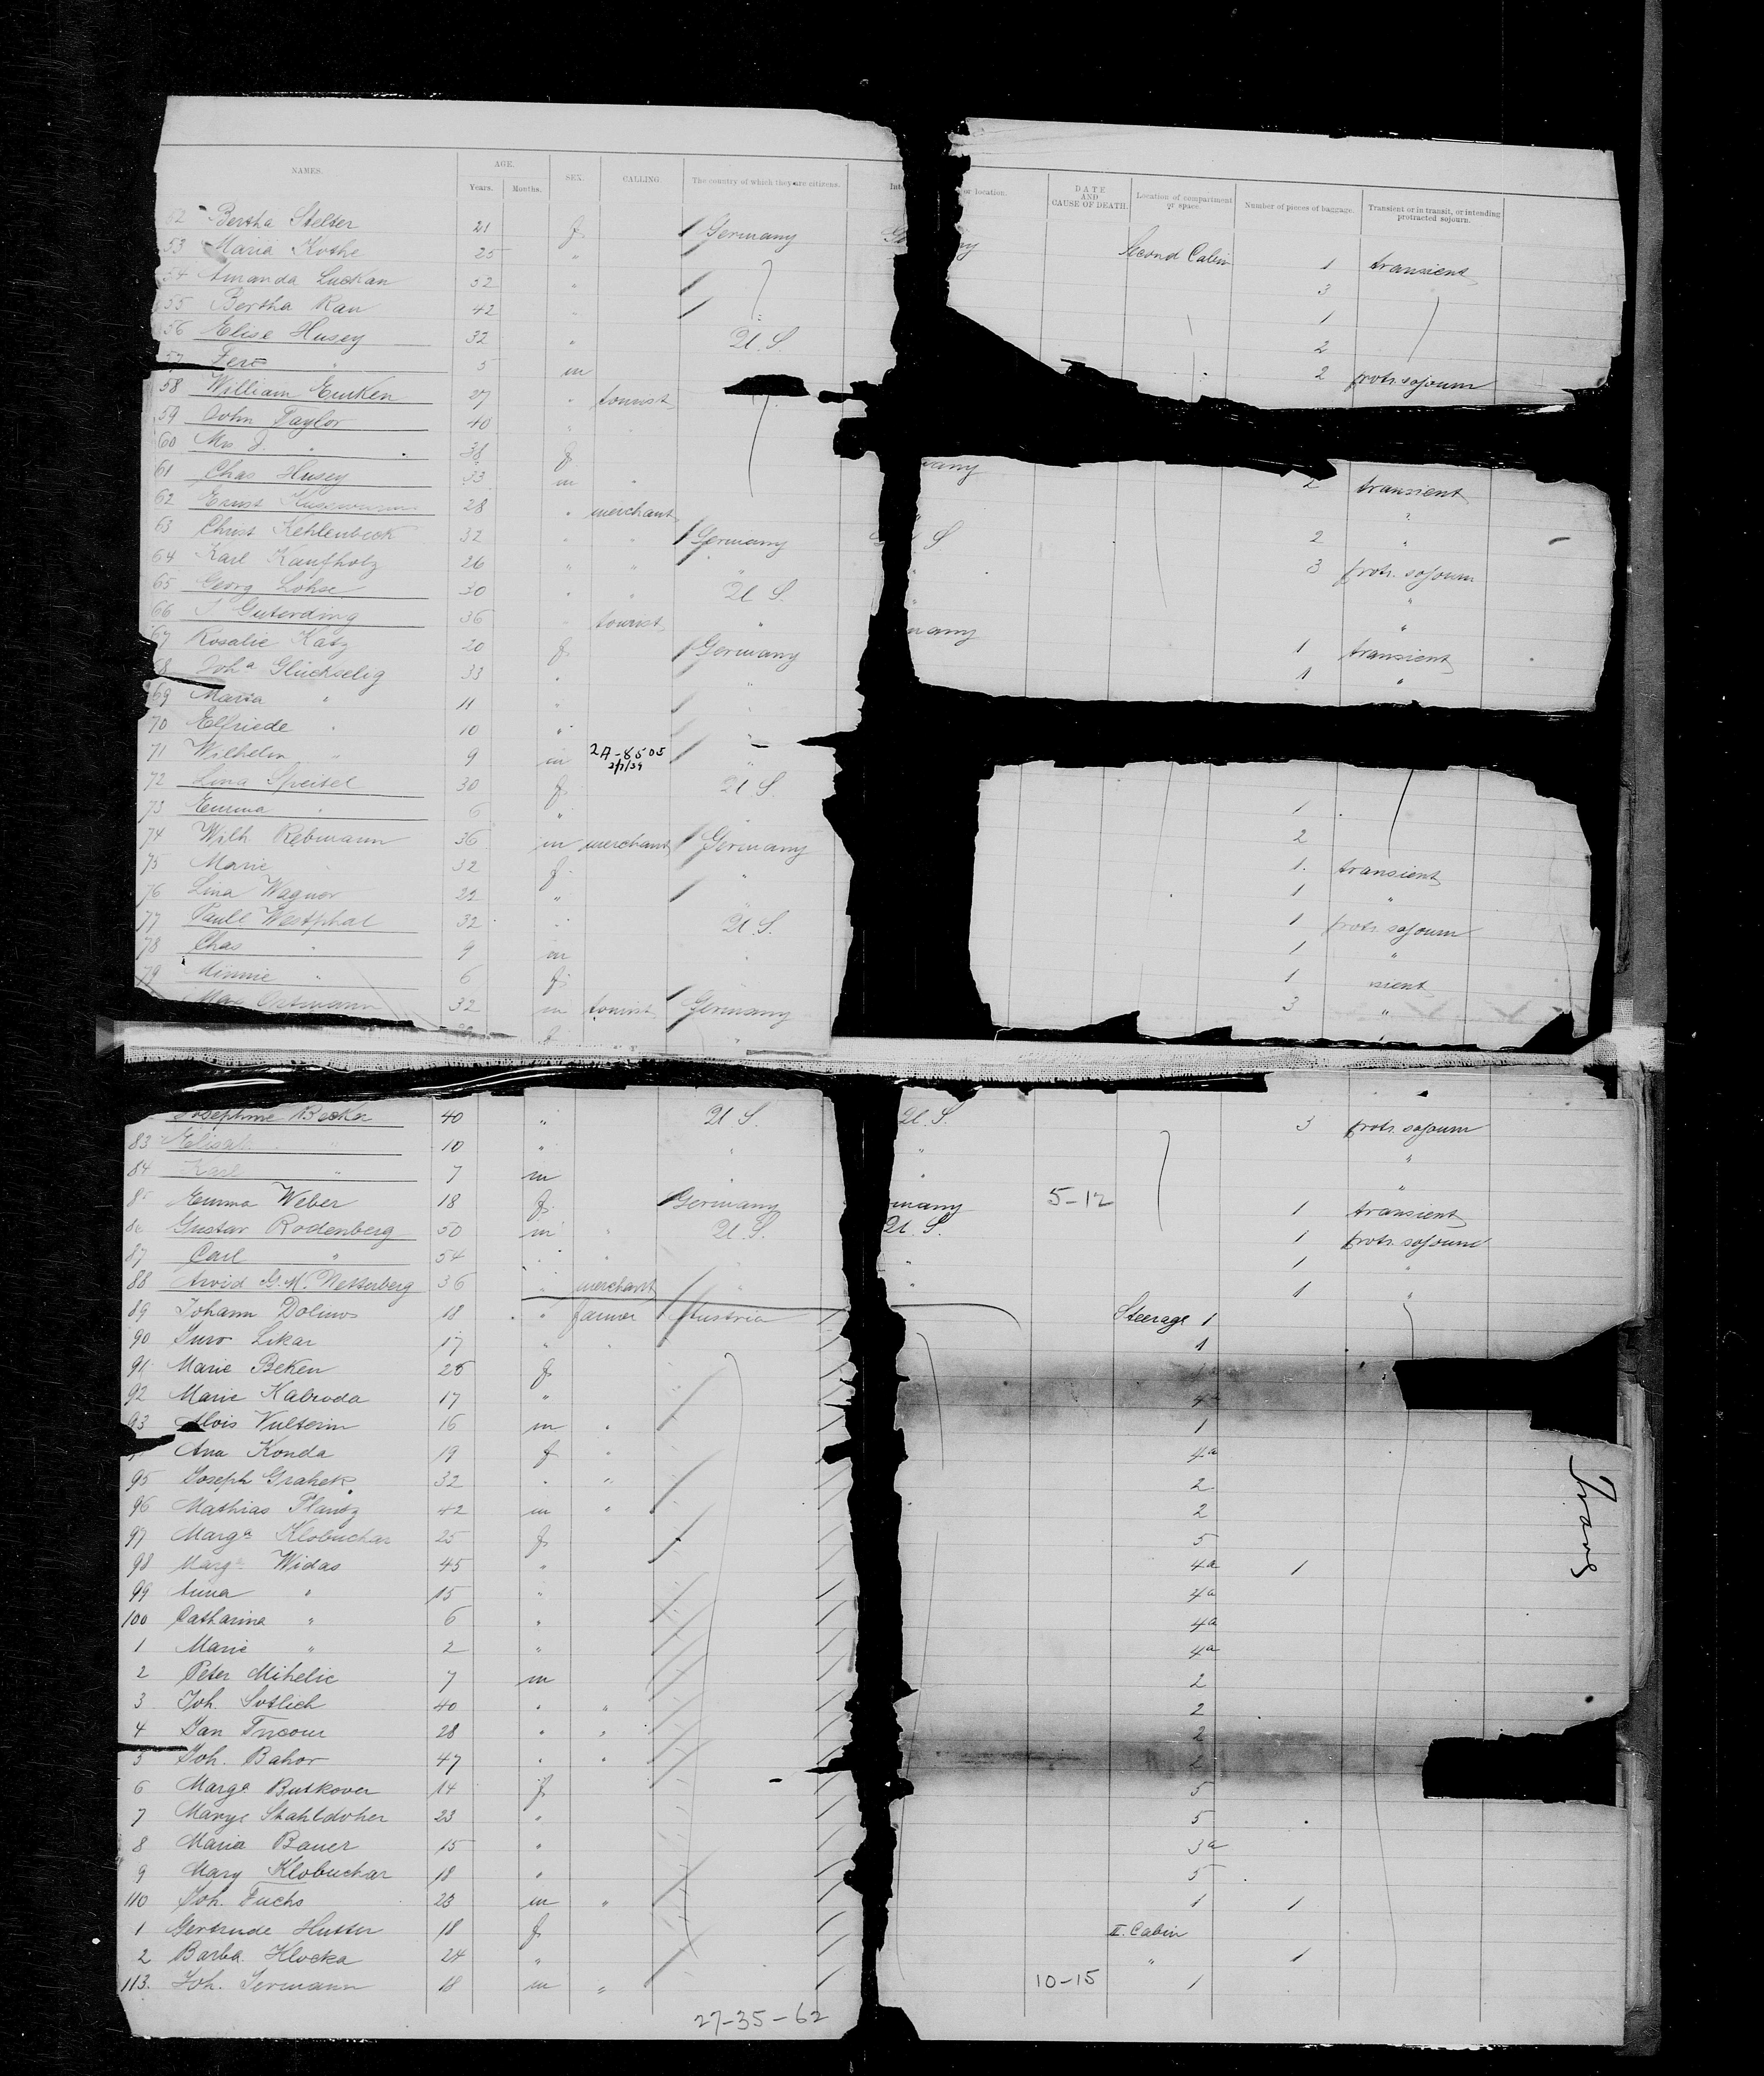 NAMES. AGE. Years. Months. SEX. CALLING The country of which they are citizens. or location. DATE AND CAUSE OF DEATH. Location of compartment or space. Number of pieces of baggage. Transient or in transit, or intending protracted sojourn.
52 Bertha Stelter 21 f Germany Second Cabin 1 transient
53 Maria Kothe 25 " 3
54 Amanda Luckan 52 " 1
55 Bertha Rau 42 2
56 Elise Husey 32 " U. S. 2 protr. sojourn
57 " 5 m
58 William 27 " tourist
59 John Taylor 40 "
60 Mrs J. " 38 f
61 Chas Husey 33 m " 2 transient
62 Ernst 28 " merchant "
63 Christ Kehlenbeck 32 " " Germany S 2 "
64 Karl Kaufholz 26 " " " 3 protr. sojourn
65 Georg Lohse 30 " " U. S. "
66 Guterding 36 tourist " "
67 Rosalie Katz 20 f Germany many 1 transient
68 Joha Glückselig 33 " " 1 "
69 Maria " 11 "
70 Elfriede " 10 "
71 Wilhelm " 9 m 2A-8505
72 Lina Speitel 30 f U. S. 1
73 Emma " 6 " 2
74 Wilh Rebmann 36 m merchant Germany 1 transient
75 Marie " 32 f " 1 "
76 Lina Wagner 22 " 1 protr. sojourn
77 Paull Westphal 32 " U. S. 1 "
78 Chas " 9 m 1 nsient
79 Minnie " 6 f 3 "
Max 32 m tourist Germany
Josephine Becker 40 " U. S. U. S. 3 protr. sojourn
83 " 10 " " " "
84 Karl " 7 m " " "
85 Emma Weber 18 f Germany rmany 5-12 1 transient
86 Gustav Rodenberg 50 m " U. S. U. S. 1 protr. sojourn
87 Carl " 54 " " 1 "
88 Arvid G. M. Netterberg 36 " merchant " " 1 "
89 Johann Dolinos 18 " farmer Austria Steerage 1
90 Juro Likar 17 " " 1
91 Marie Beken 25 f 1
92 Marie Kabroda 17 " 4a
93 Alois Vulterin 16 m " 1
Ana Konda 19 f " 4a
95 Joseph Grahek 32 " " 2
96 Mathias Plautz 42 m " 2
97 Marga Klobuchar 25 f 5
98 Marga Widas 45 " 4a 1
99 Anna " 15 " 4a
100 Catharina " 6 " 4a
1 Marie " 2 " 4a
2 Peter Mihelic 7 m 2
3 Joh. Sotlich 40 " " 2
4 Jan 28 " " 2
5 Joh. Bahor 47 " " 2
6 Marga Butkover 14 f 5
7 Marye Stahldoher 23 " 5
8 Maria Bauer 15 " 3a
9 Mary Klobuchar 18 " 5
110 Joh. Fuchs 23 m " 1 1
1 Gertrude Hutter 18 f II. Cabin
2 Barba Klocka 24 " " 1
113. Joh. Jermann 18 m " 10-15 1
27-35-62